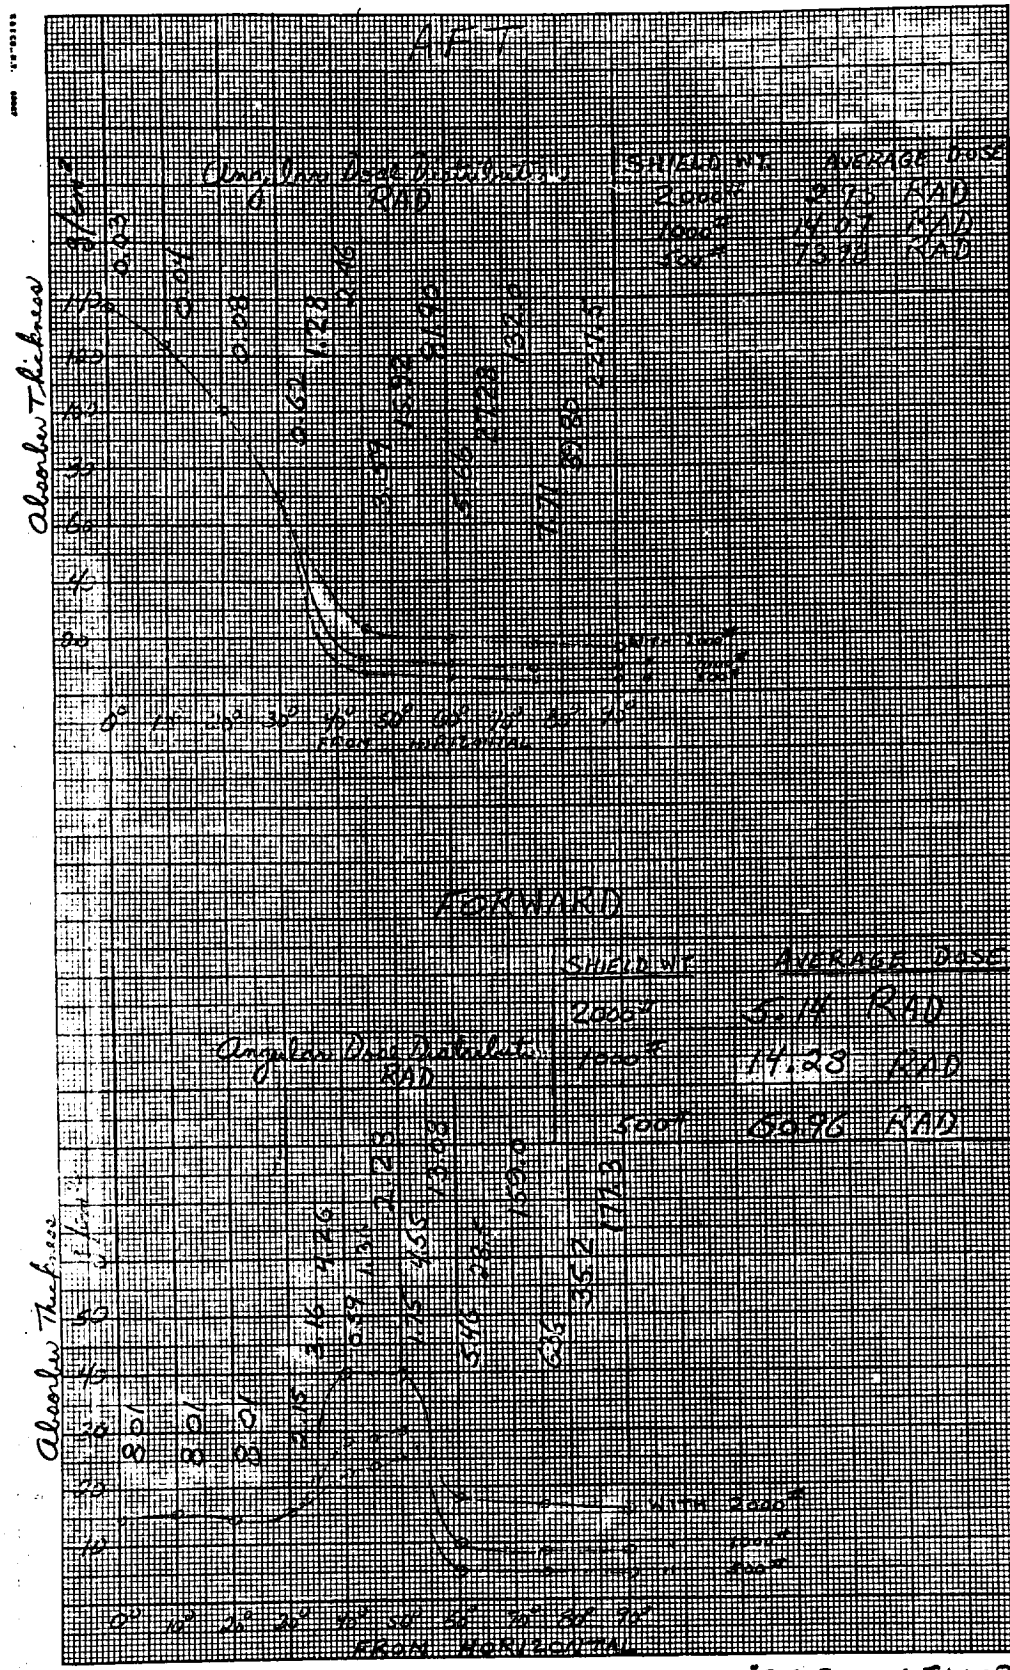 AFT
Angular Dose Distribution
RAD
SHIELD WT. AVERAGE DOSE
2000# 2.75 RAD
1000# 14.07 RAD
500# 73.98 RAD
Absorber Thickness g/cm²
0.03
0.04
0.08
0.62
1.28
2.46
3.57
15.92
81.90
5.66
27.28
132.0
7.71
39.80
227.5
WITH 2000#
" 1000#
" 500#
0° 10° 20° 30° 40° 50° 60° 70° 80° 90°
FROM HORIZONTAL
FORWARD
SHIELD WT AVERAGE DOSE
2000# 5.14 RAD
1000# 14.28 RAD
500# 60.96 RAD
Angular Dose Distributi
RAD
Absorber Thickness
50
40
30
20
10
8.01
8.01
8.01
2.15
3.16
4.26
0.59
1.31
2.28
1.75
4.55
13.08
5.46
28.5
159.0
6.36
35.2
177.3
WITH 2000#
" 1000#
" 500#
0° 10° 20° 30° 40° 50° 60° 70° 80° 90°
FROM HORIZONTAL